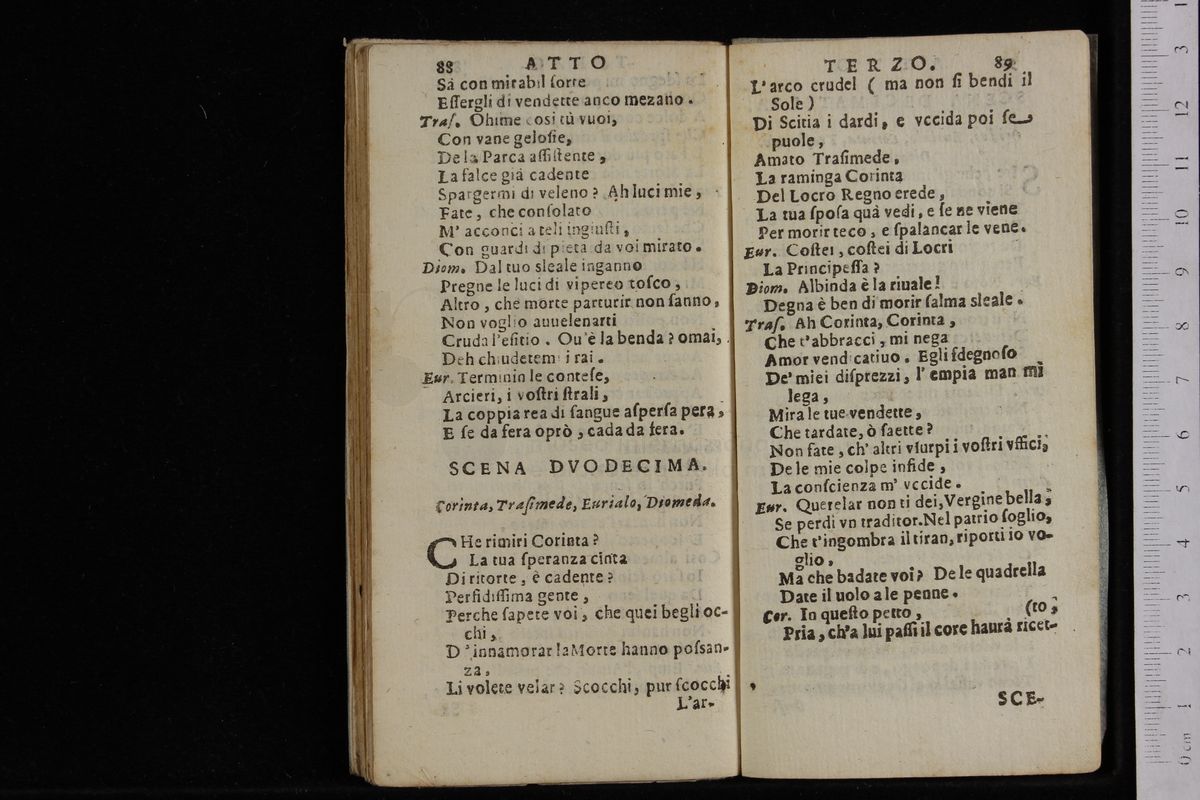 88 ATTO
Sà con mirabil ſorte
Eſſergli di vendette anco mezano.
Traſ. Ohime così tù vuoi,
Con vane geloſie,
De la Parca aſſiſtente,
La falce già cadente
Spargermi di veleno? Ah luci mie,
Fate, che conſolato
M' acconci a teli ingiuſti,
Con guardi di pietà da voi mirato.
Diom. Dal tuo sleale inganno
Pregne le luci di vipereo toſco,
Altro, che morte parturir non ſanno,
Non voglio auuelenarti
Cruda l'eſitio. Ou'è la benda? omai,
Deh chiudetemi i rai.
Eur. Terminin le conteſe,
Arcieri, i voſtri ſtrali,
La coppia rea di ſangue aſperſa pera,
E ſe da fera oprò, cada da fera.
SCENA DVODECIMA.
Corinta, Traſimede, Eurialo, Diomeda.
CHe rimiri Corinta?
La tua ſperanza cinta
Di ritorte, è cadente?
Perfidiſſima gente,
Perche ſapete voi, che quei begli oc-
chi,
D'innamorar la Morte hanno poſsan-
za,
Li volete velar? Scocchi, pur ſcocchi
L'ar-
TERZO. 89
L'arco crudel (ma non ſi bendi il
Sole)
Di Scitia i dardi, e vccida poi ſe
puole,
Amato Traſimede,
La raminga Corinta
Del Locro Regno erede,
La tua ſpoſa quà vedi, e ſe ne viene
Per morir teco, e ſpalancar le vene.
Eur. Coſtei, coſtei di Locri
La Principeſſa?
Diom. Albinda è la riuale!
Degna è ben di morir ſalma sleale.
Traſ. Ah Corinta, Corinta,
Che t'abbracci, mi nega
Amor vendicatiuo. Egli ſdegnoſo
De' miei diſprezzi, l' empia man mi
lega,
Mira le tue vendette,
Che tardate, ò ſaette?
Non fate, ch' altri vſurpi i voſtri vffici,
De le mie colpe infide,
La conſcienza m' vccide.
Eur. Querelar non ti dei, Vergine bella,
Se perdi vn traditor. Nel patrio ſoglio,
Che t'ingombra il tiran, riporti io vo-
glio,
Ma che badate voi? De le quadrella
Date il uolo a le penne.
Cor. In queſto petto, (to,
Pria, ch'a lui paſſi il core haurà ricet-
SCE-
0 cm 1 2 3 4 5 6 7 8 9 10 11 12 13